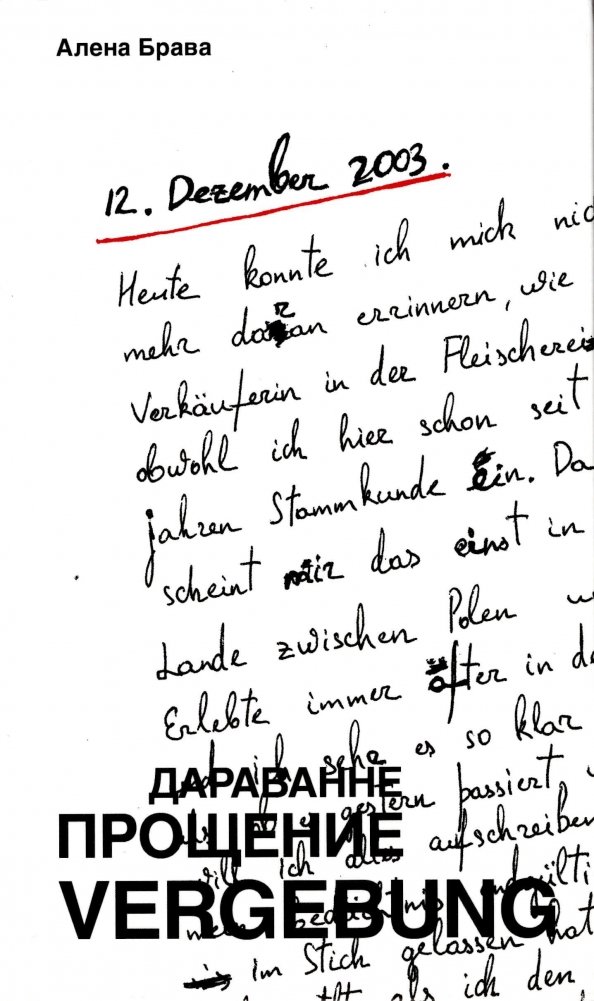 Алена Брава
12. Dezember 2003.
Heute konnte ich mick nic
mehr daran errinnern, wie
Verkäuferin in der Fleischerei
obwohl ich hier schon seit
jahren Stammkunde Da
scheint mir das einst in
Lande zwischen Polen
Erlebte immer öfter in de
ich sehe es so klar
gestern passiert,
will ich aufschreiben
endgülti
im Stich gelassen hat
als ich den
ДАРАВАННЕ
ПРОЩЕНИЕ
VERGEBUNG